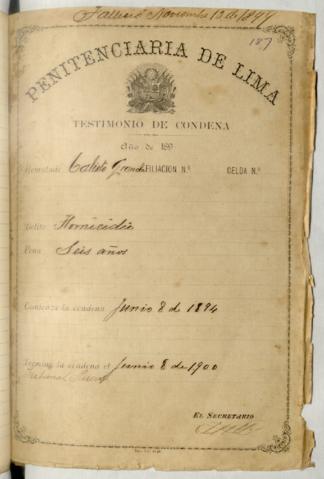 Falleció Noviembre 13 de 1897
187
PENITENCIARIA DE LIMA
TESTIMONIO DE CONDENA
Año de 189
Rematado Calisto FILIACION N.º CELDA N.º
Delito Homicidio
Pena Seis años
Comienza la condena Junio 8 de 1894
Termina la condena el Junio 8 de 1900
Tribunal
EL SECRETARIO